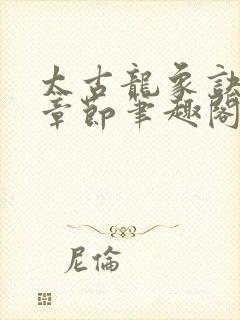 太古龍象訣
章節筆趣閣
尼倫